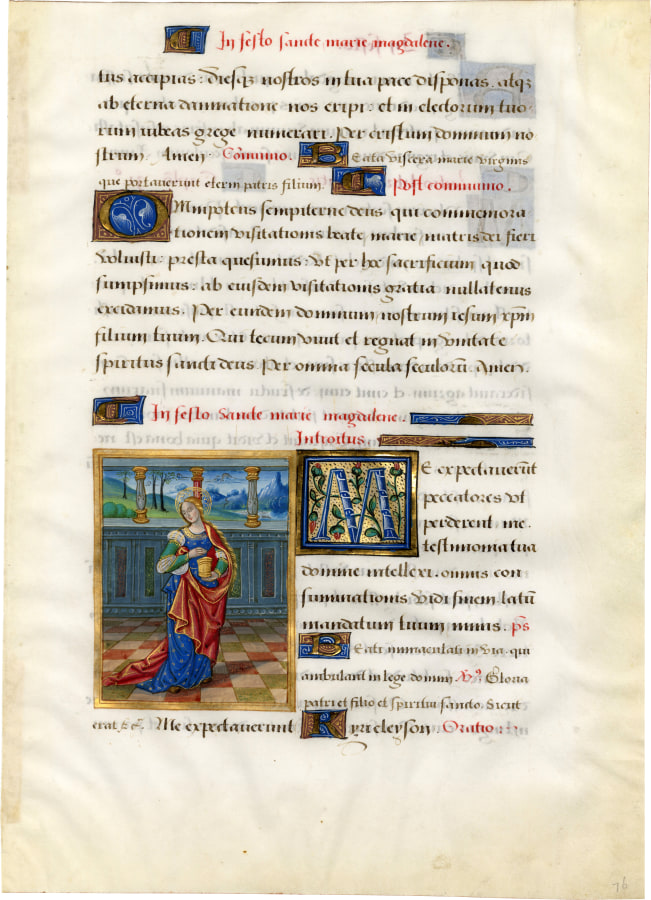 In festo sancte marie magdalene.
tus accipias: diesq; nostros in tua pace disponas. atq;
ab eterna damnatione nos eripi: et in electorum tuo
rum iubeas grege numerari. Per cristum dominum no
strum. Amen. Cõmunio. Beata viscera marie virginis
que portauerunt eterni patris filium. Post communio.
OMnipotens sempiterne deus qui commemora
tionem visitationis beate marie matris dei fieri
voluisti: presta quesumus: vt per hoc sacrificium quod
sumpsimus: ab eiusdem visitationis gratia nullatenus
excidamus. Per eundem dominum nostrum iesum xp̃m
filium tuum. Qui tecum viuit et regnat in vnitate
spiritus sancti deus Per omnia secula seculorũ. Amen.
In festo Sancte marie magdalene.
Introitus.
ME expectauerũt
peccatores vt
perderent me.
testimonia tua
domine intellexi. omnis con
summationis vidi finem latũ
mandatum tuum nimis. p̃s
Beati immaculati in via. qui
ambulant in lege domini ℣ Gloria
patri et filio et spiritui sancto. Sicut
erat &c. Me expectauerunt Kyrieleyson. Oratio
76